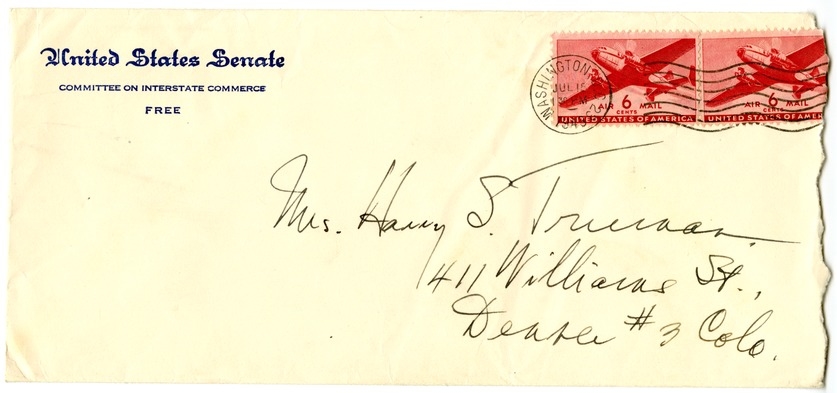 United States Senate
COMMITTEE ON INTERSTATE COMMERCE
FREE
WASHINGTON
JUL 1
AIR 6 MAIL
CENTS
UNITED STATES OF AMERICA
AIR 6 MAIL
CENTS
UNITED STATES OF AMER
Mrs. Harry S. Truman,
411 Williams St.,
Denver #3 Colo.